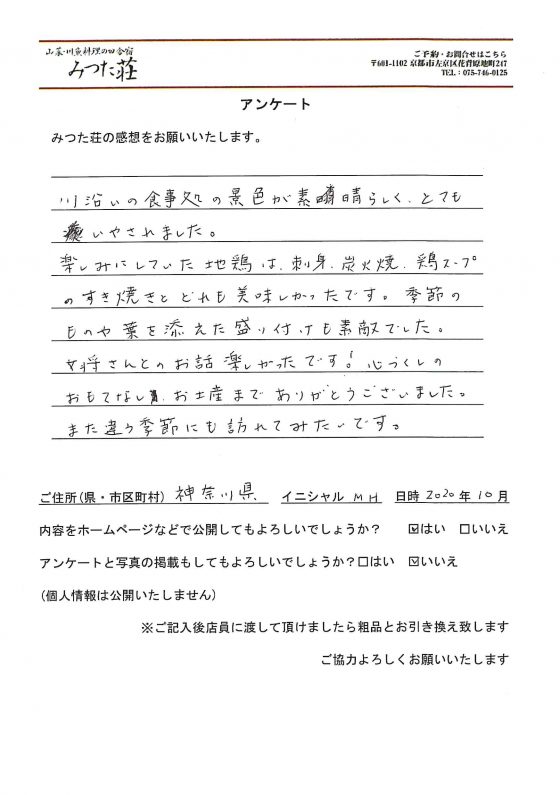 山菜・川魚料理の田舎宿
みつた荘
ご予約・お問合せはこちら
〒601-1102 京都市左京区花背原地町247
TEL：075-746-0125
アンケート
みつた荘の感想をお願いいたします。
川沿いの食事処の景色が素晴らしく、とても
いやされました。
楽しみにしていた地鶏は、刺身、炭火焼、鶏スープ
のすき焼きと どれも美味しかったです。季節の
ものや葉を添えた盛り付けも素敵でした。
女将さんとのお話 楽しかったです！心づくしの
おもてなし、お土産まで ありがとうございました。
また違う季節にも訪れてみたいです。
ご住所(県・市区町村) 神奈川県 イニシャル MH 日時 2020年10月
内容をホームページなどで公開してもよろしいでしょうか？ ☑はい □いいえ
アンケートと写真の掲載もしてもよろしいでしょうか？□はい ☑いいえ
(個人情報は公開いたしません)
※ご記入後店員に渡して頂けましたら粗品とお引き換え致します
ご協力よろしくお願いいたします